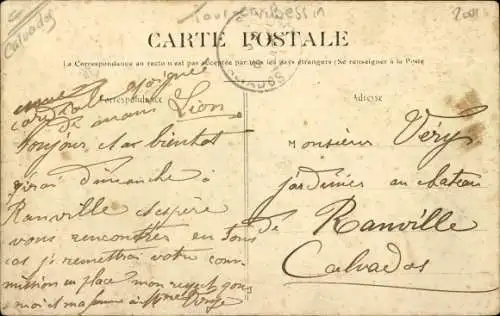 Calvados
CARTE POSTALE
La Correspondance au recto n'est pas acceptée par tous les pays étrangers (Se renseigner à la Poste
Correspondance
Adresse
cordiale poignée
de mains Lion
Toujours et a bientot
j'irai dimanche à
Ranville j'espère
vous rencontrer en tous
cas je remettrai votre com-
mission en place mon
moi et ma femme
Monsieur Véry
jardinier au chateau
de Ranville
Calvados